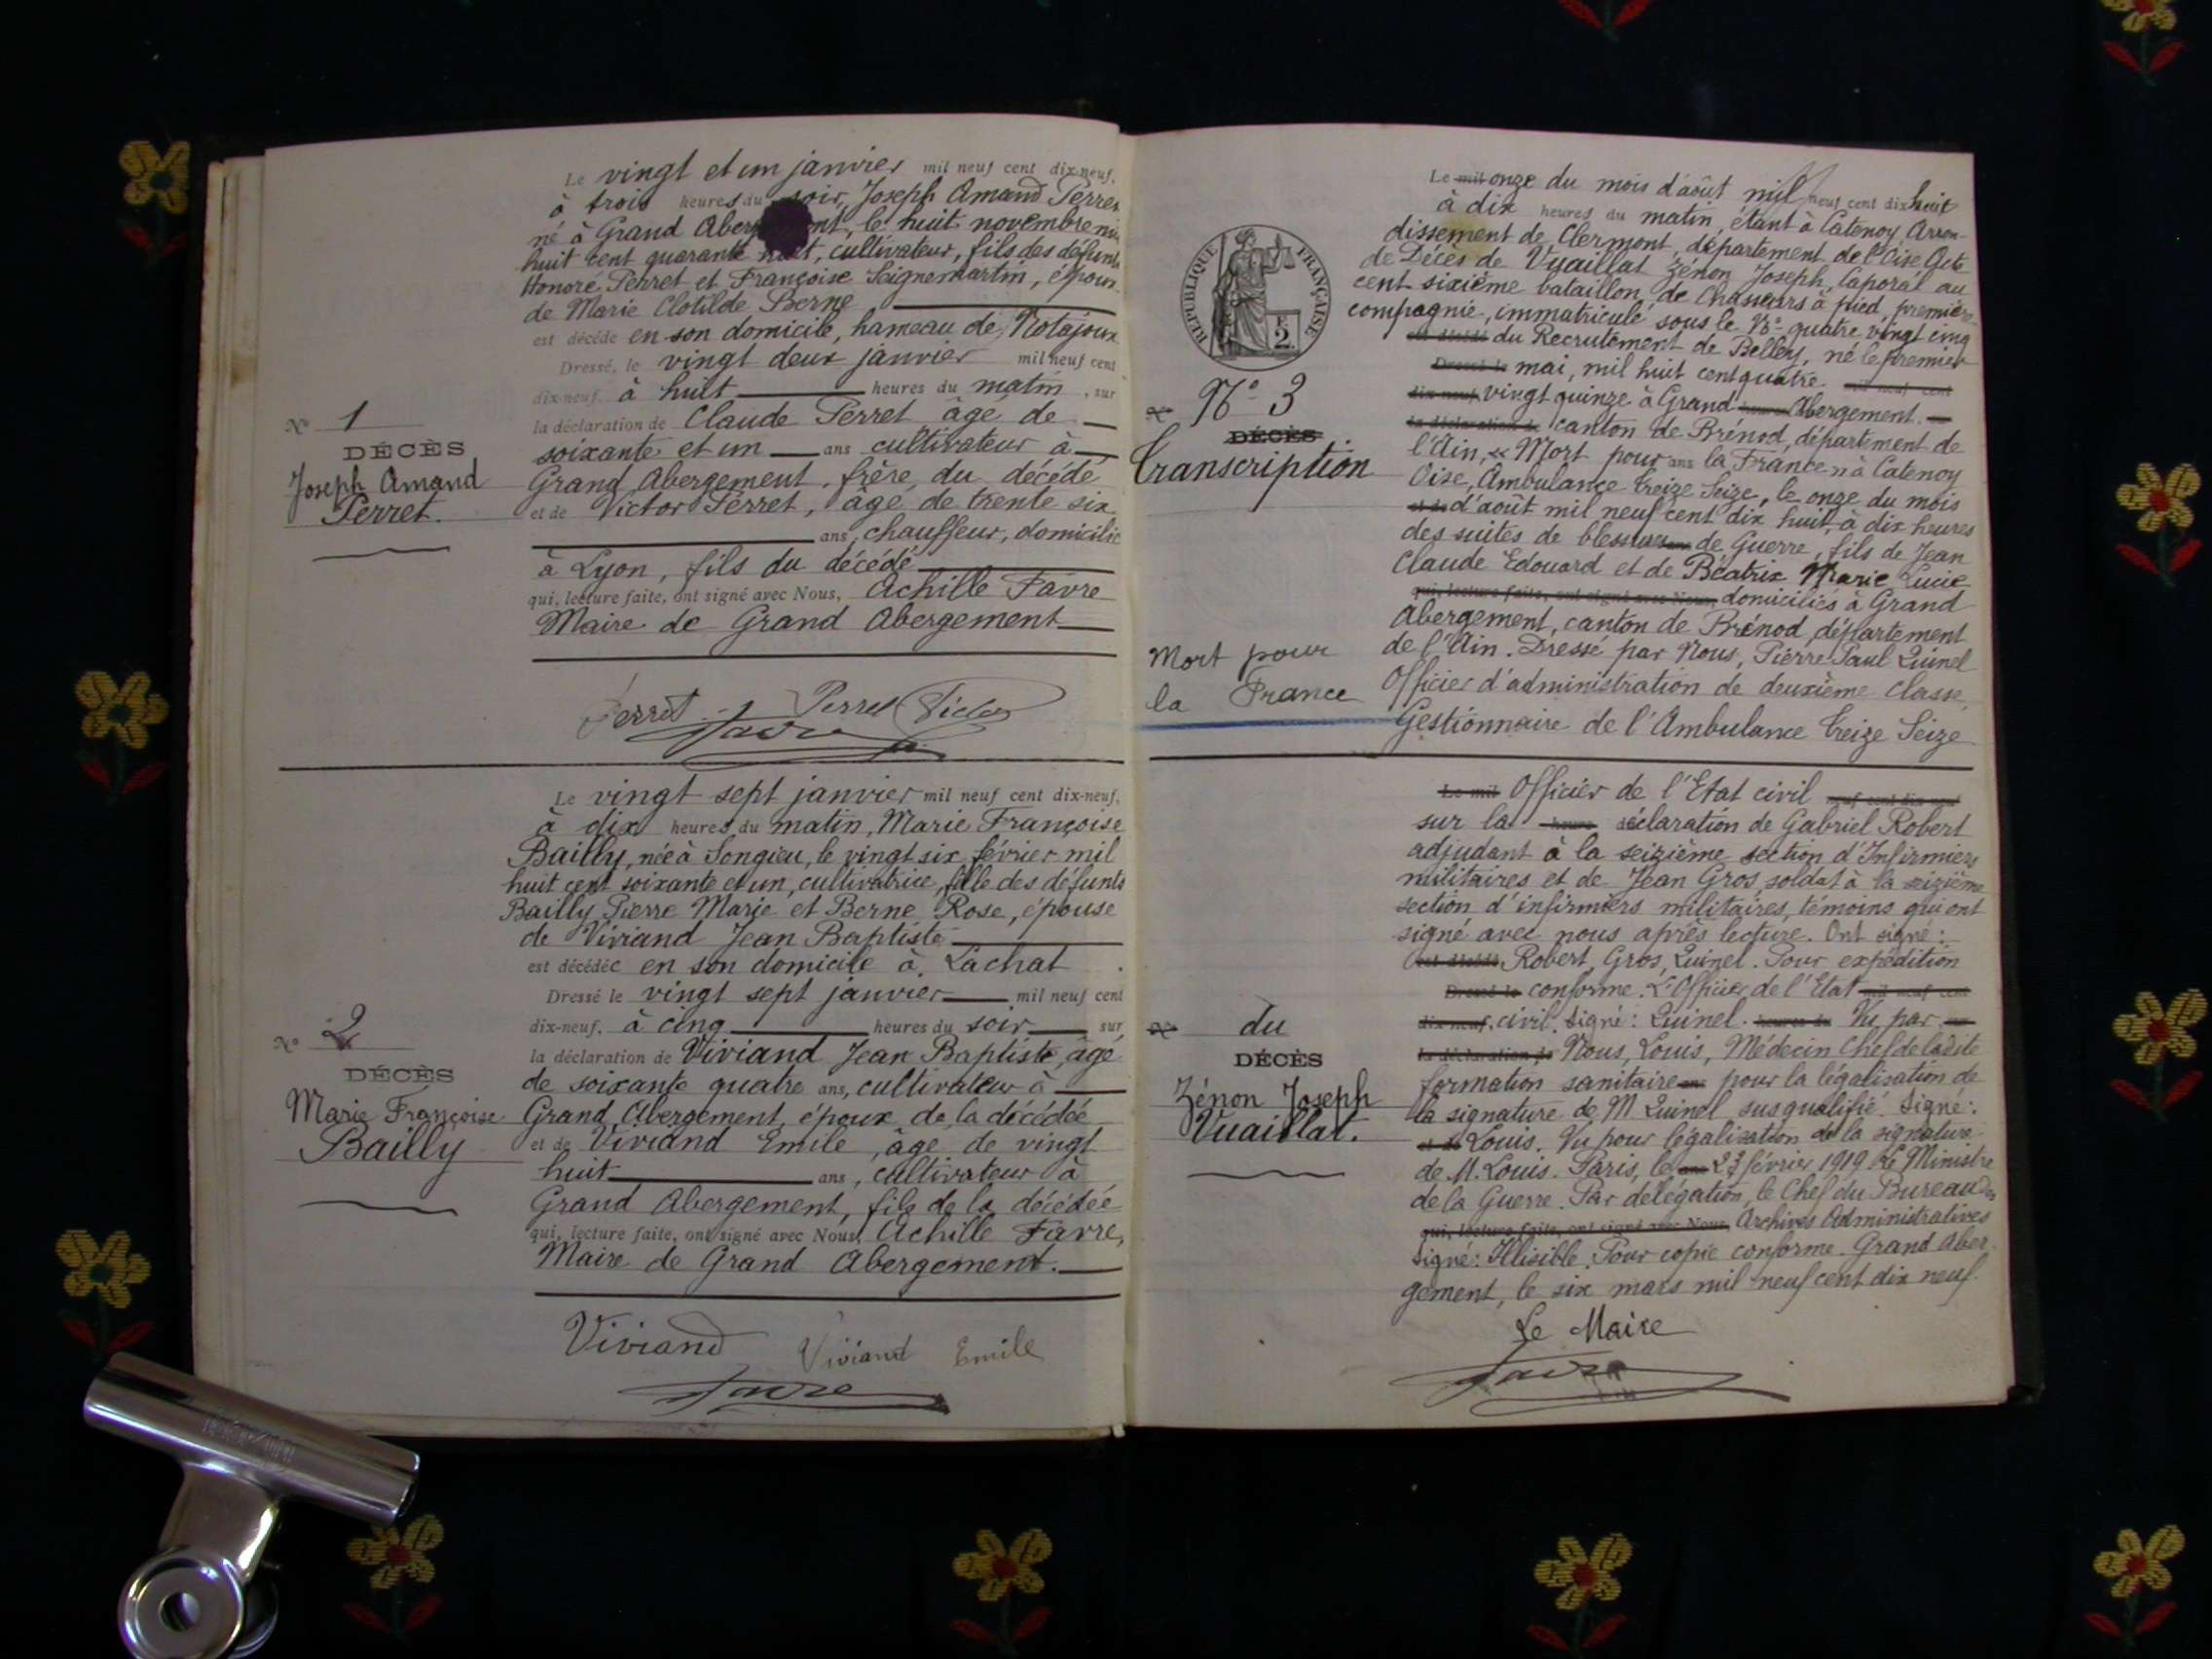 Le vingt et un janvier mil neuf cent dix-neuf,
à trois heures du soir, Joseph Amand Perret
né à Grand Abergement, le huit novembre mil
huit cent quarante huit, cultivateur, fils des défunts
Honoré Perret et Françoise Seignemartin, époux
de Marie Clotilde Berne
est décédé en son domicile, hameau de Notajoux
Dressé, le vingt deux janvier mil neuf cent
dix-neuf. à huit heures du matin, sur
la déclaration de Claude Perret âgé de
soixante et un ans cultivateur à
Grand Abergement, frère du décédé
et de Victor Perret, âgé de trente six
ans, chauffeur, domicilié
à Lyon, fils du décédé
qui, lecture faite, ont signé avec Nous, Achille Favre
Maire de Grand Abergement
N° 1
DÉCÈS
Joseph Amand
Perret.
Perret Perret Victor
Favre
Le vingt sept janvier mil neuf cent dix-neuf,
à dix heures du matin, Marie Françoise
Bailly, née à Songieu, le vingt six février mil
huit cent soixante et un, cultivatrice, fille des défunts
Bailly Pierre Marie et Berne Rose, épouse
de Viviand Jean Baptiste
est décédée en son domicile à Lachat
Dressé le vingt sept janvier mil neuf cent
dix-neuf, à cinq heures du soir sur,
la déclaration de Viviand Jean Baptiste, âgé
de soixante quatre ans, cultivateur à
Grand Abergement, époux de la décédée
et de Viviand Emile, âgé de vingt
huit ans, cultivateur à
Grand Abergement, fils de la décédée
qui, lecture faite, ont signé avec Nous, Achille Favre,
Maire de Grand Abergement.
N° 2
DÉCÈS
Marie Françoise
Bailly
Viviand Viviand Emile
Favre
RÉPUBLIQUE FRANÇAISE
2
Le mil onze du mois d'août mil neuf cent dix huit
à dix heures du matin, étant à Catenoy Arron-
dissement de Clermont, département de l'Oise Acte
de Décès de Vuaillat Zénon Joseph, Caporal au
cent sixième bataillon de Chasseurs à pied, première
compagnie, immatriculé sous le N° quatre vingt cinq
est décédé du Recrutement de Belley, né le premier
Dressé le mai, mil huit cent quatre mil neuf cent
dix-neuf, vingt quinze à Grand heures Abergement.
la déclaration de canton de Brénod, département de
l'Ain, « Mort pour ans la France » à Catenoy
Oise, Ambulance Treize Seize, le onze du mois
et de d'août mil neuf cent dix huit, à dix heures
des suites de blessures ans de Guerre, fils de Jean
Claude Edouard et de Béatrix Marie Lucie
qui, lecture faite, ont signé avec Nous, domiciliés à Grand
Abergement, canton de Brénod, département
de l'Ain. Dressé par Nous, Pierre Paul Quinel
Officier d'administration de deuxième Classe,
Gestionnaire de l'Ambulance Treize Seize
N° 3
DÉCÈS
Transcription
Mort pour
la France
Le mil Officier de l'Etat civil neuf cent dix-neuf
sur la heures déclaration de Gabriel Robert
adjudant à la seizième section d'Infirmiers
militaires et de Jean Gros, soldat à la seizième
section d'infirmiers militaires, témoins qui ont
signé avec nous après lecture. Ont signé :
est décédé Robert, Gros, Quinel. Pour expédition
Dressé le conforme. L'Officier de l'Etat mil neuf cent
dix-neuf, civil. Signé : Quinel. heures du Vu par
la déclaration de Nous, Louis, Médecin Chef de ladite
formation sanitaire ans pour la légalisation de
la signature de M Quinel susqualifié. Signé :
et de Louis. Vu pour légalisation de la signature
de M. Louis. Paris, le ans 27 février 1919 Le Ministre
de la Guerre. Par délégation, le Chef du Bureau des
qui, lecture faite, ont signé avec Nous, Archives Administratives
Signé : Illisible. Pour copie conforme. Grand Aber-
gement, le six mars mil neuf cent dix neuf.
Le Maire
Favre
N° du
DÉCÈS
Zénon Joseph
Vuaillat.